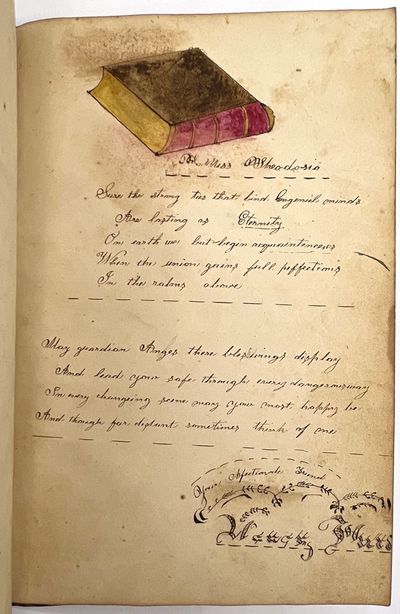 To Miss Theodosia
Sure the strong ties that bind Congenial minds
Are lasting as Eternity
On earth we but begin acquaintences
When the union gains full peffections
In the ralms above
May guardian Anges there blesswings display
And lead your safe through every dangerusway
In every changeing scene may your most happy be
And though far distant sometimes think of me
Your Afectionate Friend